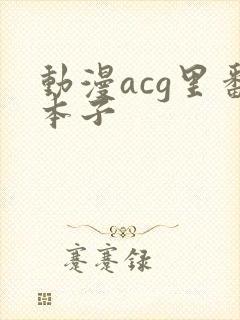 動漫acg里番
本子
蹇蹇録